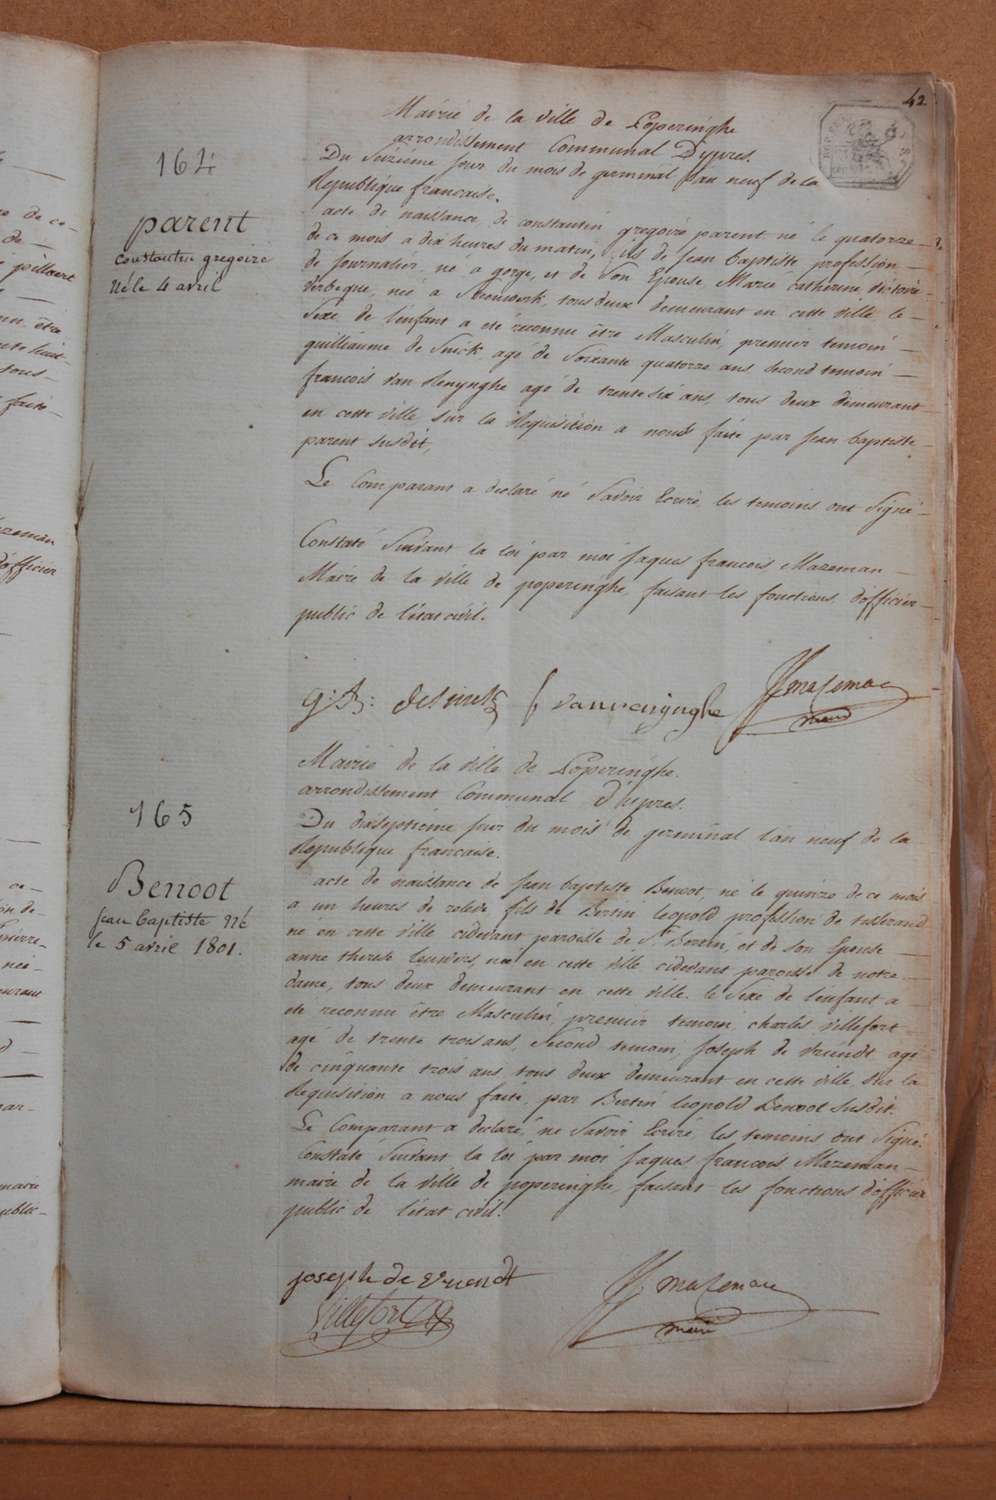 42
Mairie de la ville de Poperinghe
arrondissement Communal Dypres.
Du Seizieme jour du mois de germinal l'an neuf de la
Republique francaise.
164
parent
Constantin gregoire
Né le 4 avril
acte de naissance de constantin gregoire parent né le quatorze
de ce mois a dix heures du matin, fils de jean baptiste profession
de journalier, né a gorge, et de Son Epouse Marie catherine victoire
Verbeque, née a Steenwerk, tous deux demeurant en cette ville le
Sexe de l'enfant a eté reconnu être Masculin, premier temoin
guilliaume de Snick agé de Soixante quatorze ans Second temoin
francois van Renynghe agé de trente six ans, tous deux demeurant
en cette ville sur la Requisition a nous faite par jean baptiste
parent susdit,
Le Comparant a declaré né Savoir Ecrire, les temoins ont Signé
Constaté Suivant la loi par moi jaques francois Mazeman
Maire de la ville de poperinghe, faisant les fonctions d'officier
public de l'etat civil.
g: B: desinck f vanrenynghe JJ mazeman
maire
165
Benoot
jean baptiste Né
le 5 avril 1801.
Mairie de la ville de Poperinghe.
arrondissement Communal d'hypres.
Du dixseptieme jour du mois de germinal l'an neuf de la
Republique francaise.
acte de naissance de jean baptiste Benoot né le quinze de ce mois
a un heures de relevé, fils de Bertin Leopold profession de tisserand
né en cette ville cidevant paroisse de St Bertin, et de Son Epouse
anne therese née en cette ville cidevant paroisse de notre
dame, tous deux demeurant en cette ville. le Sexe de l'enfant a
eté reconnu être Masculin, premier temoin charles villefort
agé de trente trois ans, Second temoin, joseph de vriendt agé
de cinquante trois ans, tous deux demeurant en cette ville sur la
Requisition a nous faite, par Bertin Leopold Benoot susdit.
Le Comparant a declaré, ne Savoir Ecrire, les temoins ont Signé.
Constaté Suivant la loi par moi jaques francois Mazeman
maire de la ville de poperinghe, faisant les fonctions d'officier
public de l'etat civil.
joseph de vriendt JJ mazeman
Villefort maire